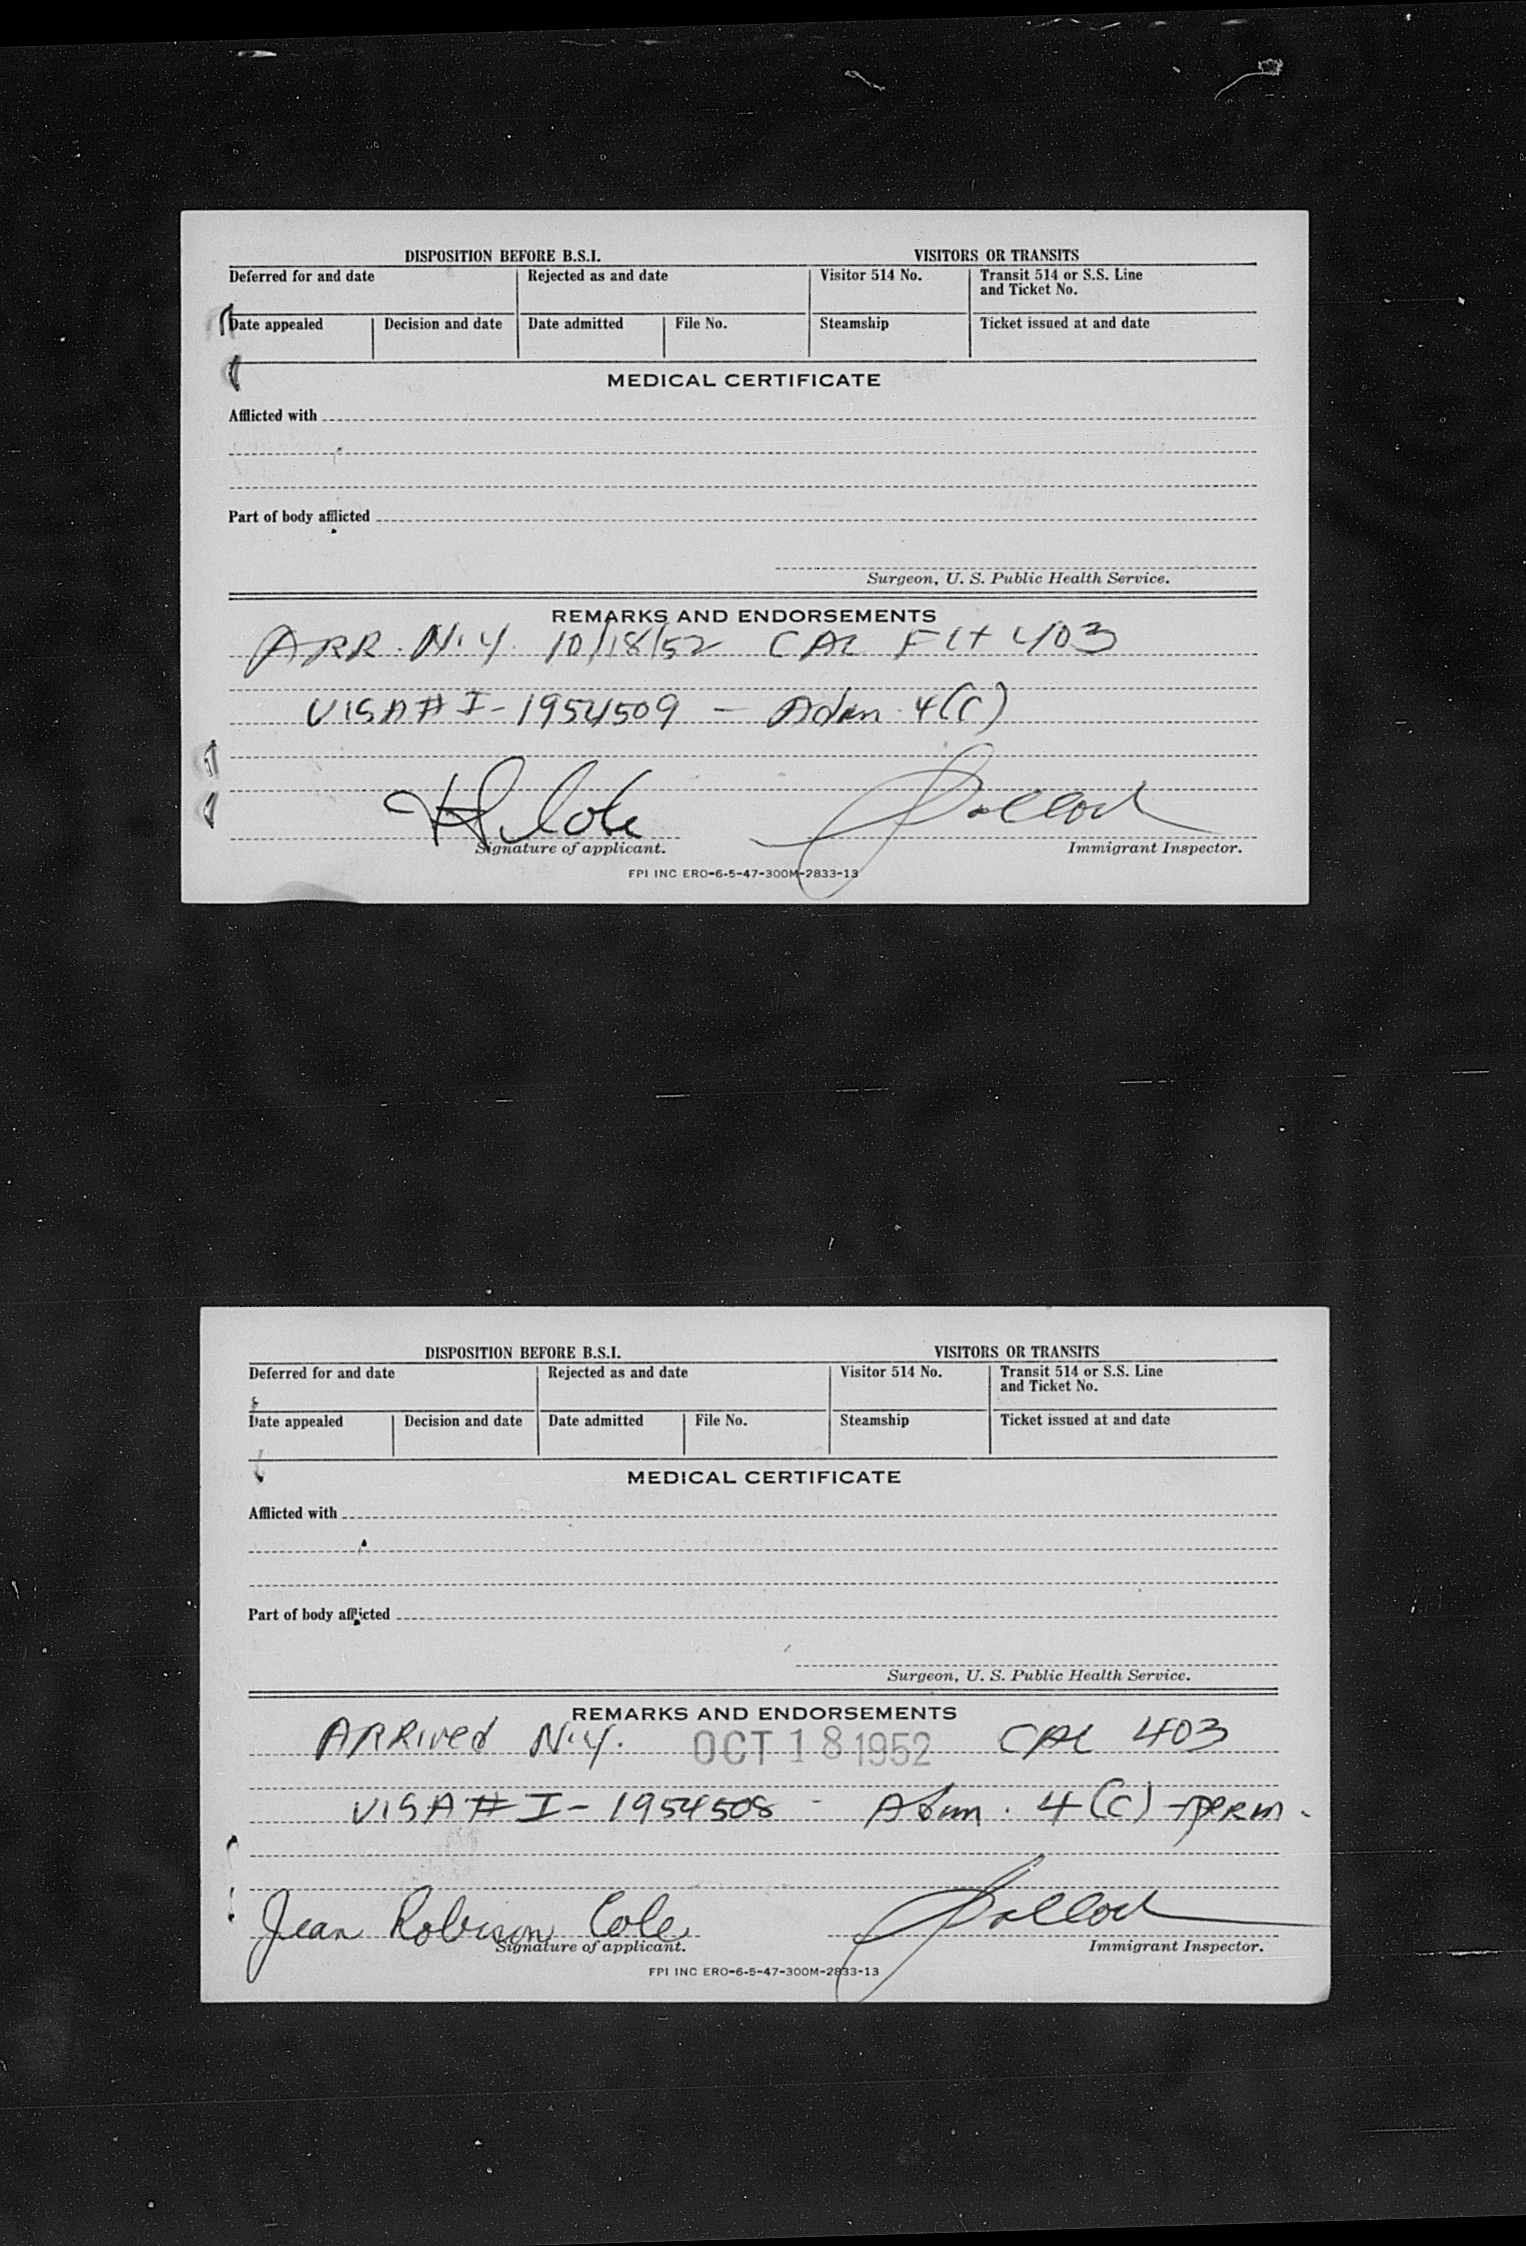 DISPOSITION BEFORE B.S.I. VISITORS OR TRANSITS
Deferred for and date Rejected as and date Visitor 514 No. Transit 514 or S.S. Line
and Ticket No.
Date appealed Decision and date Date admitted File No. Steamship Ticket issued at and date
MEDICAL CERTIFICATE
Afflicted with
Part of body afflicted
Surgeon, U. S. Public Health Service.
REMARKS AND ENDORSEMENTS
ARR. N.Y. 10/18/52 CAL Flt 403
VISA # I-1954509 - Adm. 4(C)
Cole
Signature of applicant. Immigrant Inspector.
FPI INC ERO-6-5-47-300M-2833-13
DISPOSITION BEFORE B.S.I. VISITORS OR TRANSITS
Deferred for and date Rejected as and date Visitor 514 No. Transit 514 or S.S. Line
and Ticket No.
Date appealed Decision and date Date admitted File No. Steamship Ticket issued at and date
MEDICAL CERTIFICATE
Afflicted with
Part of body afflicted
Surgeon, U. S. Public Health Service.
REMARKS AND ENDORSEMENTS
ARRived N.Y. OCT 18 1952 CAL 403
VISA # I-1954508 - Adm. 4(C) - perm.
Jean Robison Cole
Signature of applicant. Immigrant Inspector.
FPI INC ERO-6-5-47-300M-2833-13